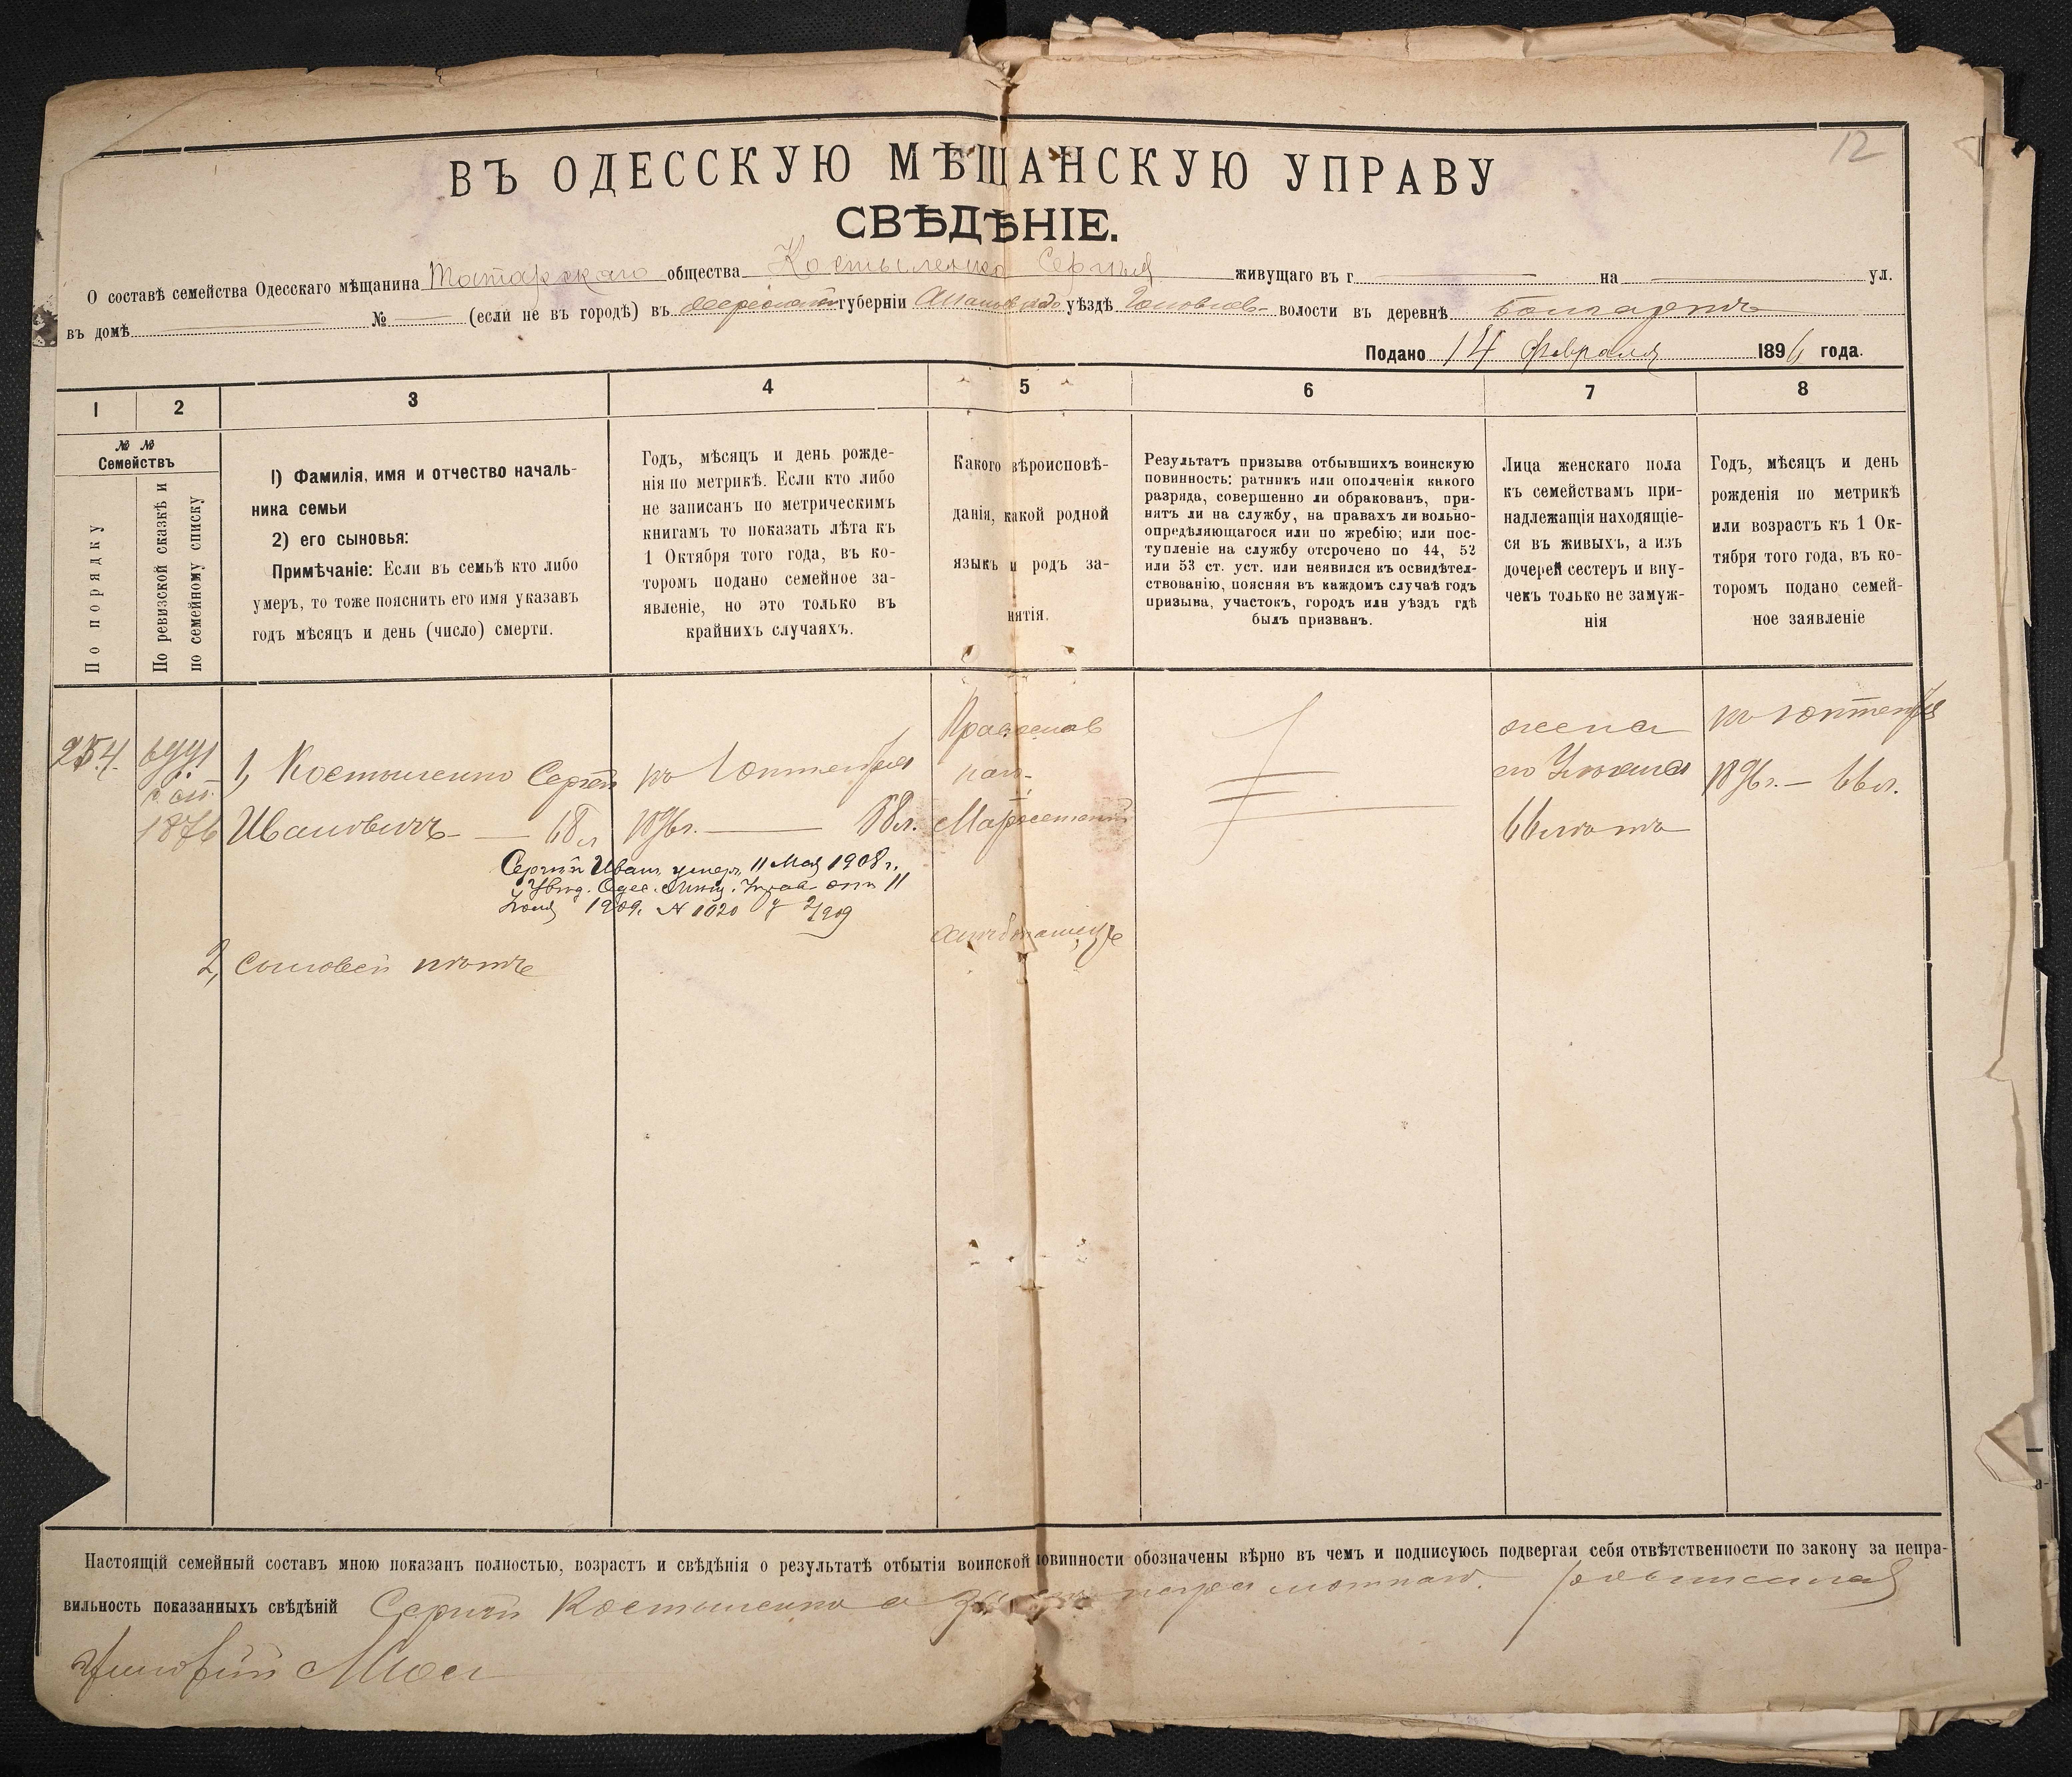 12
ВЪ ОДЕССКУЮ МѢЩАНСКУЮ УПРАВУ
СВѢДѢНІЕ.
О составѣ семейства Одесскаго мѣщанина Татарскаго общества Костыленко Сергѣя живущаго въ г. на ул.
въ домѣ № (если не въ городѣ) въ Херсонской губерніи Ананьевскаго уѣздѣ волости въ деревнѣ
Подано 14 Февраля 1896 года.
1 2 3 4 5 6 7 8
№ №
Семействъ
По порядку
По ревизской сказкѣ и
по семейному списку
1) Фамилія, имя и отчество началь-
ника семьи
2) его сыновья:
Примѣчаніе: Если въ семьѣ кто либо
умеръ, то тоже пояснить его имя указавъ
годъ мѣсяцъ и день (число) смерти.
Годъ, мѣсяцъ и день рожде-
нія по метрикѣ. Если кто либо
не записанъ по метрическимъ
книгамъ то показать лѣта къ
1 Октября того года, въ ко-
торомъ подано семейное за-
явленіе, но это только въ
крайнихъ случаяхъ.
Какого вѣроисповѣ-
данія, какой родной
языкъ и родъ за-
нятія.
Результатъ призыва отбывшихъ воинскую
повинность: ратникъ или ополченія какого
разряда, совершенно ли обракованъ, при-
нятъ ли на службу, на правахъ ли вольно-
опредѣляющагося или по жребію; или пос-
тупленіе на службу отсрочено по 44, 52
или 53 ст. уст. или неявился къ освидѣтел-
ствованію, поясняя въ каждомъ случаѣ годъ
призыва, участокъ, городъ или уѣздъ гдѣ
былъ призванъ.
Лица женскаго пола
къ семействамъ при-
надлежащія находящіе-
ся въ живыхъ, а изъ
дочерей сестеръ и вну-
чекъ только не замуж-
нія
Годъ, мѣсяцъ и день
рожденія по метрикѣ
или возрастъ къ 1 Ок-
тября того года, въ ко-
торомъ подано семей-
ное заявленіе
254.
1876
1, Костыленко Сергѣй
Ивановичъ — 68 л
къ 1 октября
1896г. — 68л.
Православ
жена
66 лѣтъ
къ 1 октября
1896г. — 66л.
Сергѣй Иван. умеръ 11 Мая 1908 г.
Увѣд. Одес. Мѣщ. Управ отъ 11
1909. N 1020
2, сыновей нѣтъ
Настоящій семейный составъ мною показанъ полностью, возрастъ и свѣдѣнія о результатѣ отбытія воинской повинности обозначены вѣрно въ чемъ и подписуюсь подвергая себя отвѣтственности по закону за непра-
вильность показанныхъ свѣдѣній Сергѣй Костыленко а неграмотнаго